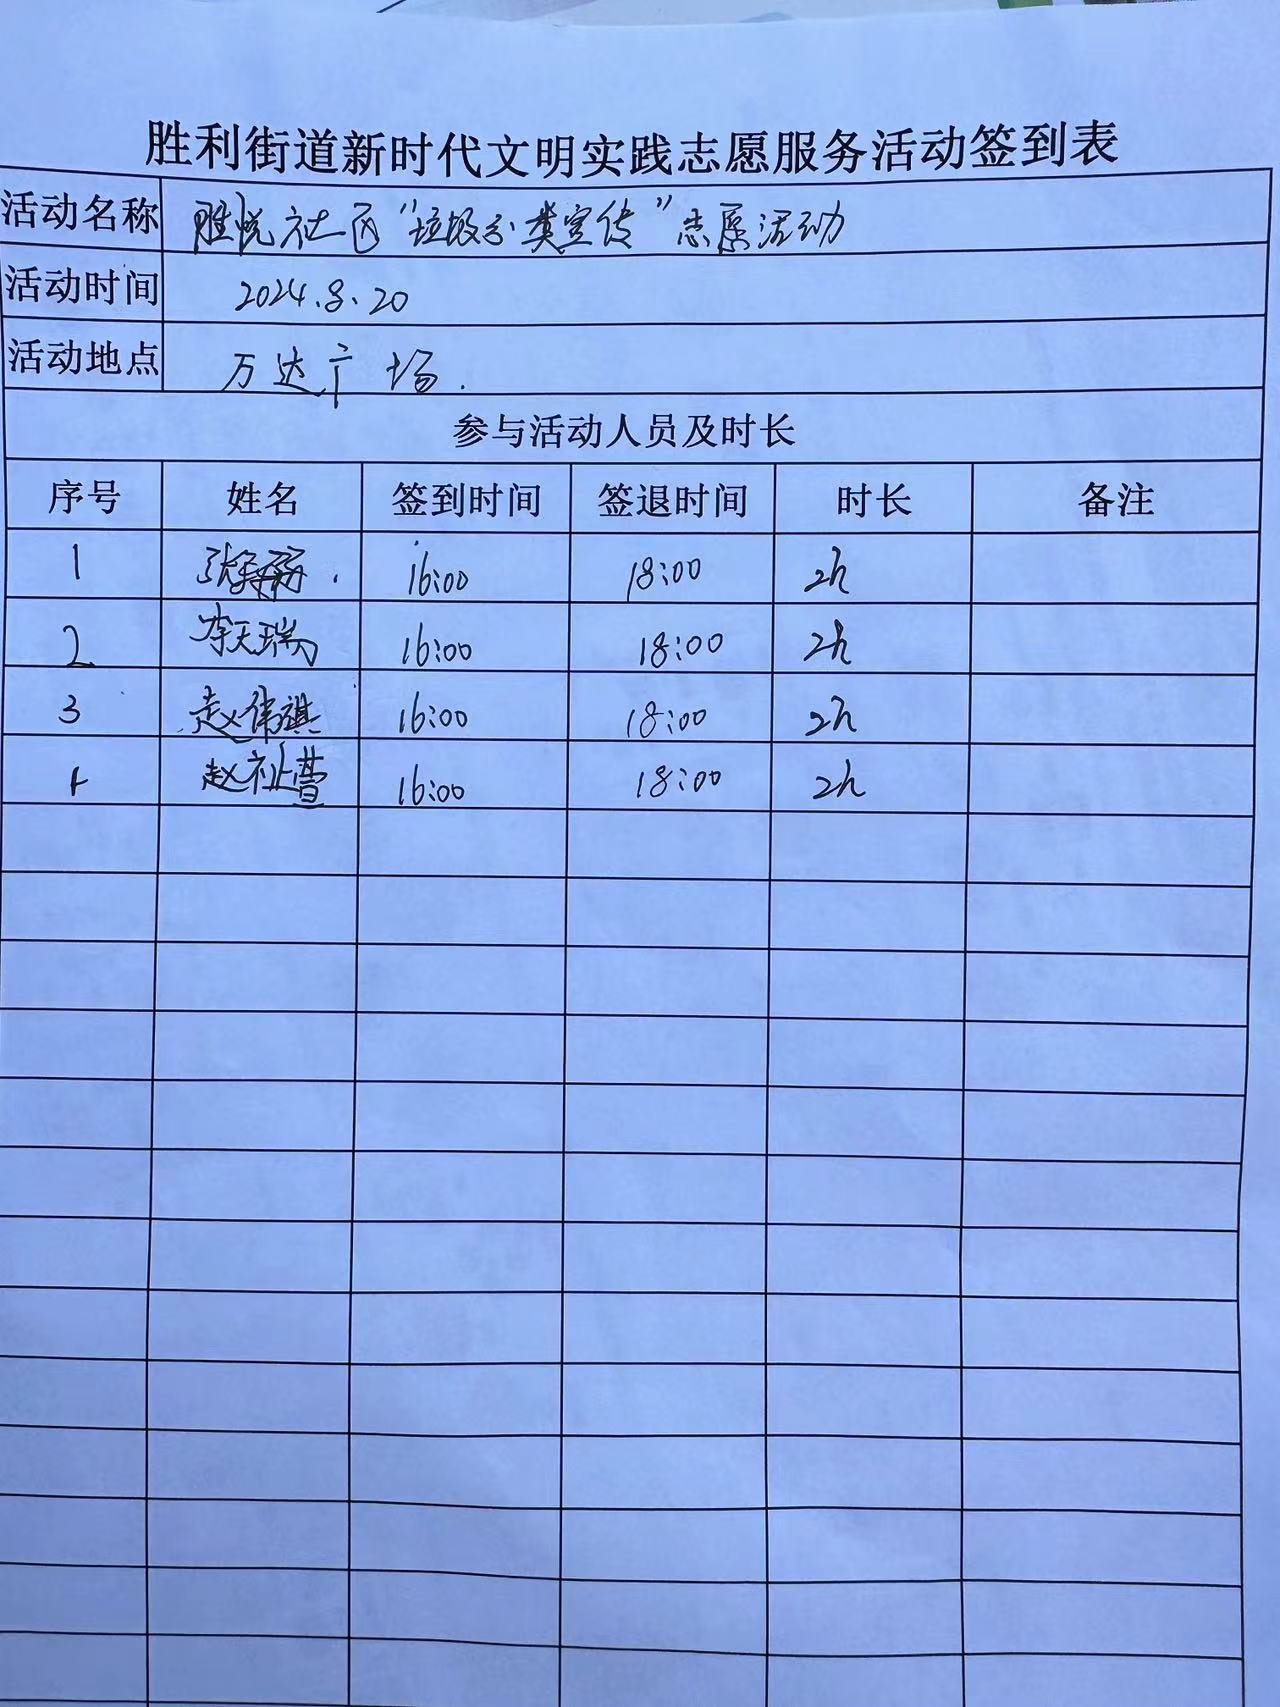 胜利街道新时代文明实践志愿服务活动签到表
活动名称 胜悦社区“垃圾分类宣传”志愿活动
活动时间 2024.8.20
活动地点 万达广场.
参与活动人员及时长
序号 姓名 签到时间 签退时间 时长 备注
1 16:00 18:00 2h
2 李天瑞 16:00 18:00 2h
3 赵伟祺 16:00 18:00 2h
4 赵 16:00 18:00 2h